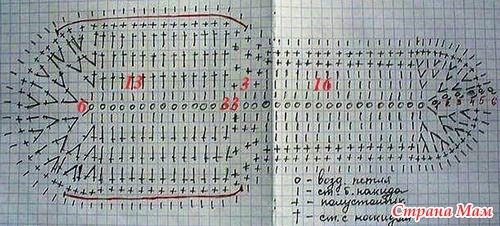 13 3 16
6 33
о - возд. петля
ı - ст. б. накида
+ - полустолбик
† - ст. с накидом
Страна Мам